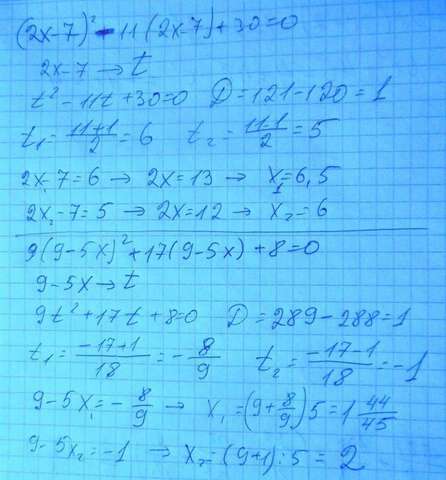 (2x-7)² - 11(2x-7)+30=0
2x-7 → t
t² - 11t + 30=0 D=121-120=1
t₁=(11+1)/2=6 t₂=(11-1)/2=5
2x₁-7=6 → 2x=13 → x₁=6,5
2x₂-7=5 → 2x=12 → x₂=6
9(9-5x)²+17(9-5x)+8=0
9-5x→t
9t²+17t+8=0 D=289-288=1
t₁=(-17+1)/18=-8/9 t₂=(-17-1)/18=-1
9-5x₁=-8/9 → x₁=(9+8/9)5=1 44/45
9-5x₂=-1 → x₂=(9+1):5=2